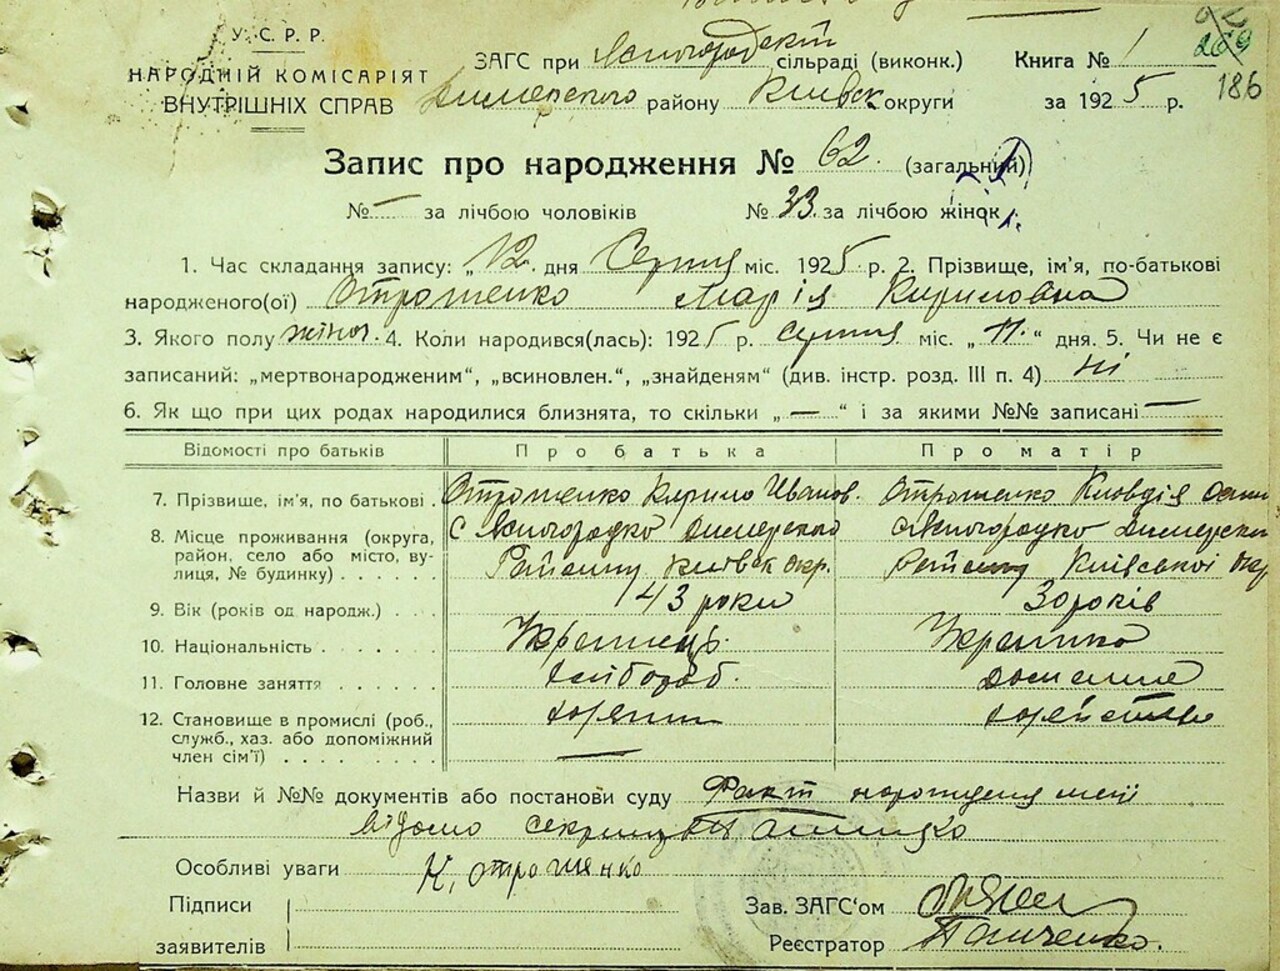 У.С.Р.Р.
НАРОДНІЙ КОМІСАРІЯТ
ВНУТРІШНІХ СПРАВ
ЗАГС при Ясногородскій сільраді (виконк.)
Димерського району Київск округи
Книга № 1
за 1925 р.
269
186
Запис про народження № 62. (загальний)
№ — за лічбою чоловіків № 33. за лічбою жінок
1. Час складання запису: „12. дня Серпня міс. 1925. р. 2. Прізвище, ім'я, по-батькові
народженого(ої) Отрошенко Марія Кириловна
3. Якого полу жіноч. 4. Коли народився(лась): 1925 р. серпня міс. „11.“ дня. 5. Чи не є
записаний: „мертвонародженим“, „всиновлен.“, „знайденям“ (див. інстр. розд. III п. 4) ні
6. Як що при цих родах народилися близнята, то скільки „—“ і за якими №№ записані —
Відомості про батьків Про батька Про матір
7. Прізвище, ім'я, по батькові . Отрошенко Кирило Иванов. Отрошенко Кловдія
8. Місце проживання (округа, район, село або місто, вулиця, № будинку) . . . . .
С Ясногородко Димерського с Ясногородко Димерськ
Району Київск окр. Району Київської окр
9. Вік (років од народж.) . . . 43 роки 30 років
10. Національність . . . . . . Украінець. Украінка
11. Головне заняття . . . . . . хлібороб. домашне
12. Становище в промислі (роб., служб., хаз. або допоміжний член сім'ї) . . . . . . . .
—
Назви й №№ документів або постанови суду Факт народження
відомо
Особливі уваги К. Отрошенко
Підписи
заявителів
Зав. ЗАГС'ом
Реєстратор Панченко.